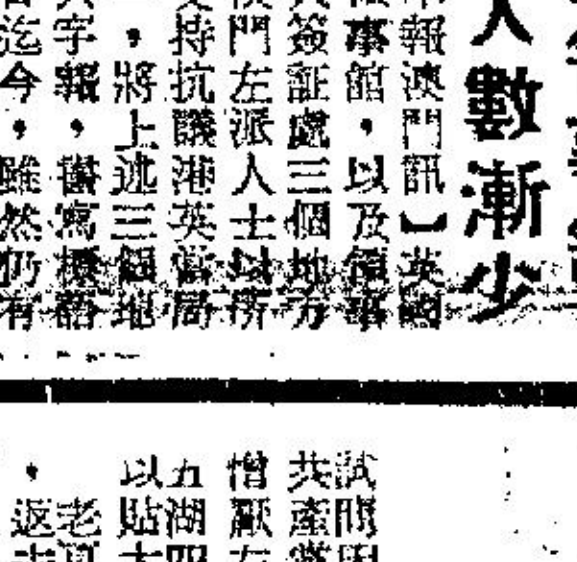 人數漸少
報澳門訊】英國
事館，以及領事
簽証處三個地方
門左派人士以
持抗議港英當局
，將上述三個地
字報，書寫標語
迄今，雖然仍有
試問
共產黨
憎厭左
五湖四
以貼大
老
，返